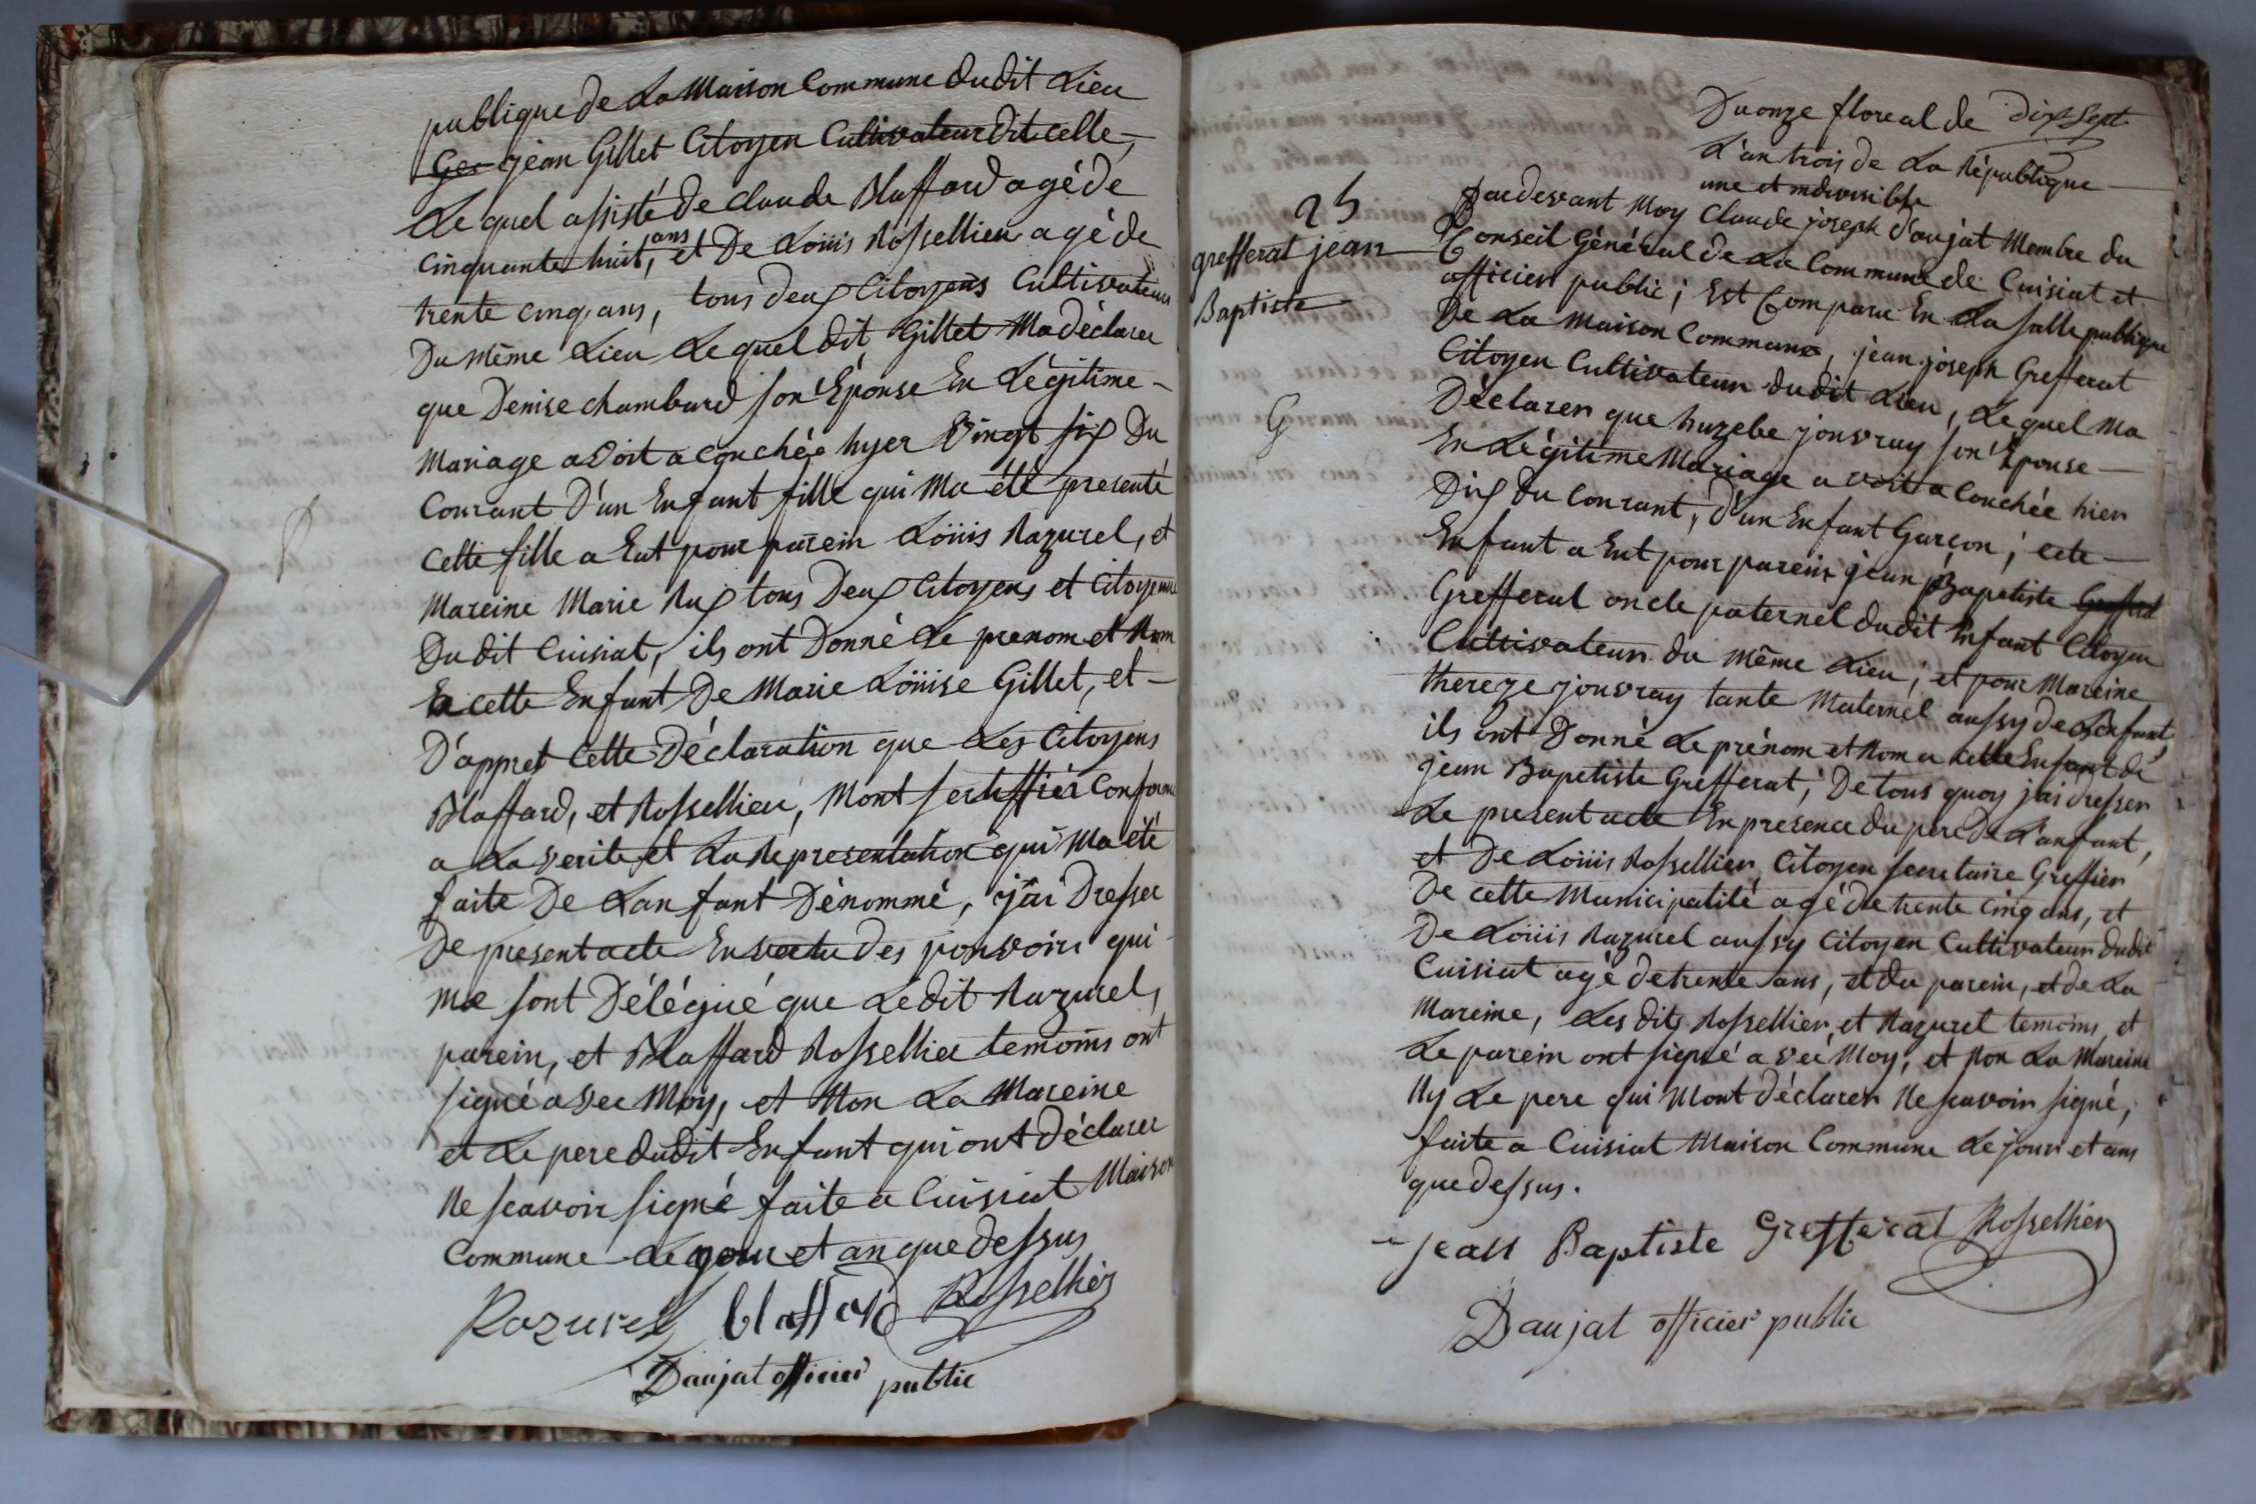 publique de La Maison Commune dudit Lieu
Ger jean Gillet Citoyen Cultivateur dit celle,
Le quel assisté de claude Blaffard agé de
cinquante huit, ans et De Loüis Rossellier agé de
trente cinq ans, tous deux Citoyens Cultivateurs
Du même Lieu Le quel dit Gillet Ma déclarer
que Denise chambard son Épouse En Légitime
Mariage avoit acouchée hyer Vingt six Du
Courant D'un Enfant fille qui Ma été presenté
Cette fille a Eut pour parein Loüis Razurel, et
Mareine Marie Rux tous Deux Citoyens et Citoyenne
Dudit Cuisiat, ils ont Donné Le prenom et Nom
a cette Enfant De Marie Loüise Gillet, et
D'appret Cette Déclaration que Les Citoyens
Blaffard, et Rossellier, Mont sertiffiér Conforme
a La verite et La Representation qui Ma été
faite De Lanfant Dénommé, j'ai Dresser
De present acte En vertu des pouvoirs qui
me sont Délégué que Ledit Razurel,
parein, et Blaffard Rossellier temoins ont
signé avec Moy, et Non La Mareine
et Le pere dudit Enfant qui ont Déclarer
Ne scavoir signé faite a Cuisiat Maison
Commune Le jour et an que dessus
Razurel blaffard Rossellier
Daujat officier public
Du onze floreal de dix Sept
L'an trois de La République
une et indivisible
25
grefferat jean
Baptiste
G
Pardevant Moy Claude joseph Daujat Membre du
Conseil Général de La Commune de Cuisiat et
officier public; Est Comparu En La salle publique
De La Maison Commune, jean joseph Grefferat
Citoyen Cultivateur dudit Lieu, Le quel Ma
Déclarer que huzebe jouvray son Épouse
En Légitime Mariage avoit acouchée hier
Dix du Courant, d'un Enfant Garçon; cete
Enfant a Eut pour parein jean Bapetiste
Grefferat oncle paternel dudit Enfant Citoyen
Cultivateur du même Lieu; et pour Mareine
thereze jouvray tante Maternel aussy de Lenfant,
ils ont Donné Le prénom et Nom a cette Enfant de
jean Bapetiste Grefferat; De tous quoy j'ai dresser
Le present acte En presence du pere de L'anfant,
et De Loüis Rossellier Citoyen secretaire Greffier
De cette Municipalité agé de trente cinq ans, et
De Loüis Razurel aussy Citoyen Cultivateur dudit
Cuisiat agé de trente ans, et du parein, et de La
Mareine, Les dits Rossellier, et Razurel temoins, et
Le parein ont signé avec Moy; et Non La Mareine
Ny Le pere qui Mont déclarer Ne scavoir signé,
faite a Cuisiat Maison Commune Le jour et an
que dessus.
jean Baptiste Grefferat Rossellier
Daujat officier public